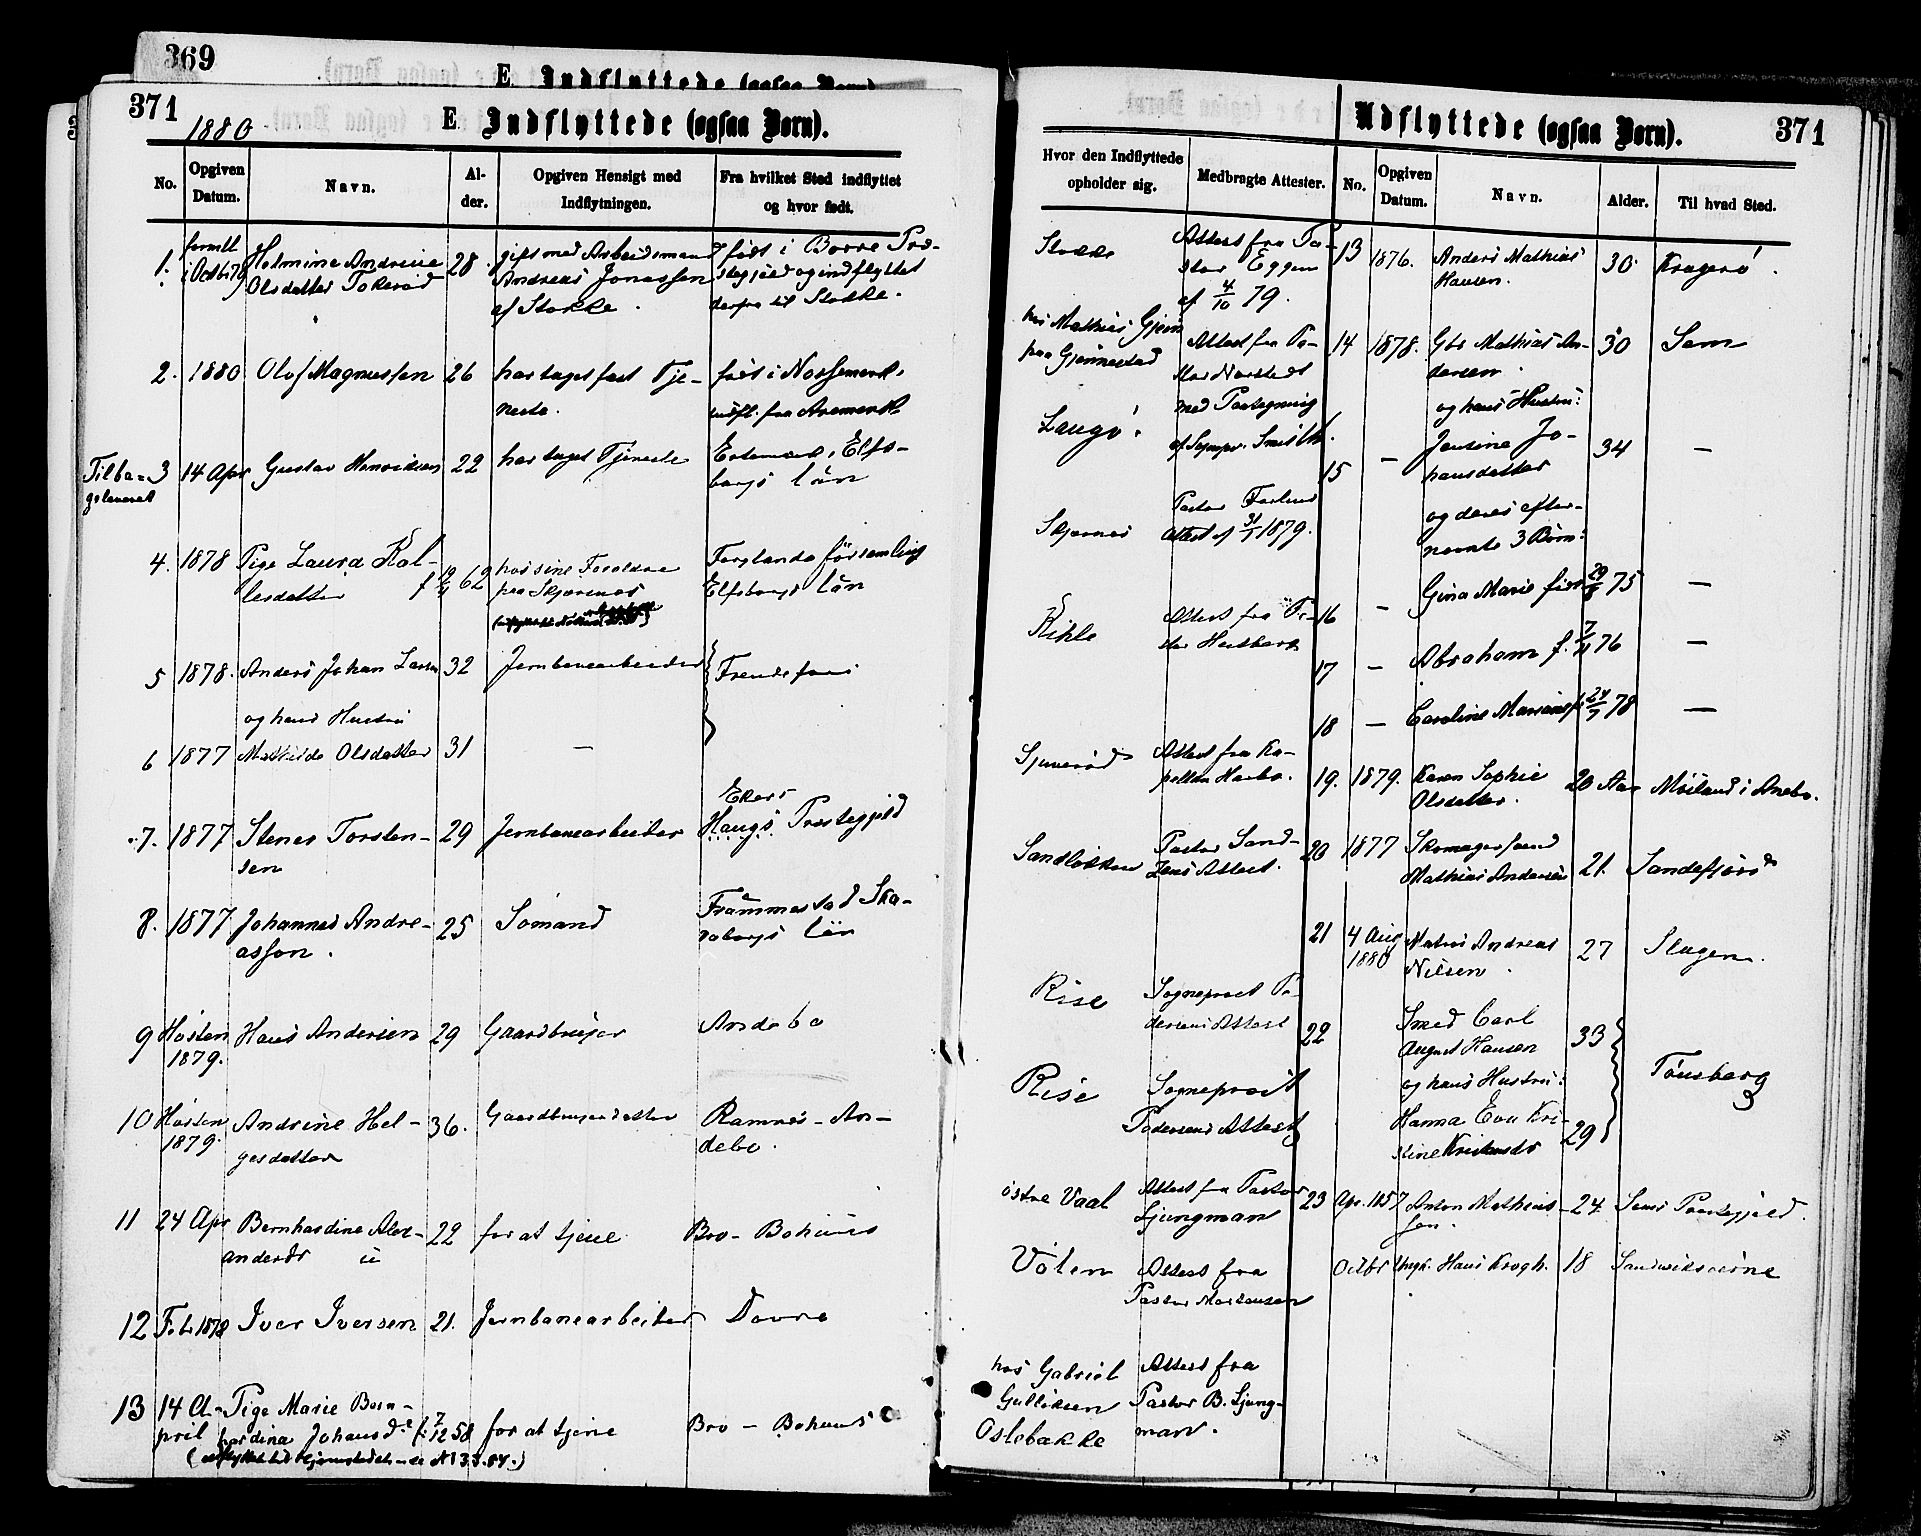 369
E Indflyttede (ogsaa Børn).
371
1880
E Indflyttede (ogsaa Børn).
No.
Opgiven
Datum.
Navn.
Al-
der.
Opgiven Hensigt med
Indflytningen.
Fra hvilket Sted indflyttet
og hvor født.
1.
Octb 79
Holmine Andreie
Olsdatter Tokerød
28
gift med Arbeidsmand
Andreas Jonassen
af Stokke.
født i Borre Præ-
stegjeld og indflyttet
derfra til Stokke.
2. 1880 Olof Magnussen 26
har taget fast Tje-
neste.
født i Nossemark
indfl. fra Aremark
Tilba-
3 14 Apr Gustav Henriksen 22 har taget Tjeneste
Elfs-
borgs län
4. 1878 Pige Laura Kal-
lesdatter
62
hos sine Forældre
paa Skjærnes
Färglanda församling
Elfsborgs län
5 1878. Anders Johan Larsen 32 Jernbanearbeider
og hans Hustru
6 1877 Mathilde Olsdatter 31 —
7. 1877 Stener Torsten-
sen
29 Jernbanearbeider
Eker
Haugs Præstegjeld
8. 1877 Johannes Andre-
asson.
25 Sømand
Främmestad Ska-
raborgs län
9 Høsten
1879.
Hans Andersen 29 Gaardbruger
Andebo
10 Høsten
1879.
Andrine Hel-
gesdatter
36. Gaardbrugerdatter
Ramnes - An-
debo.
11 24 Apr Bernhardine Alex-
andersdr
22 for at tjene Bro - Bohuus
12 Feb 1878 Iver Iversen 21. Jernbanearbeider Dovre
13 14 A-
pril
Pige Marie Bern-
hardina Johansd.
f. 7/12 58 for at tjene Bro - Bohuus
Udflyttede (ogsaa Børn). 371
Hvor den Indflyttede
opholder sig.
Medbragte Attester.
No.
Opgiven
Datum.
Navn.
Alder.
Til hvad Sted.
Stokke
Attest fra Pa-
stor Eggen
af 4/10 79.
13 1876. Anders Mathias
Hansen.
30 Kragerø.
hos Mathias Gjein
paa Gjennestad
Attest fra Pa-
stor Norstedt
14 1878. Gbr Mathias An-
dersen.
30 Sem
Langø.
med Paategning
15 —
og hans Hustru:
Jensine Jo-
hansdatter
34 —
Skjærnes
Pastor
Attest af 31/1 1879.
og deres efter-
nevnte 3 Børn:
Kihle
Attest fra Pa-
stor
16 — Gina Marie født 75 —
17 — Abraham f. 76 —
18 — 78 —
Attest fra Ka-
pellan
19. 1879. Karen Sophie
Olsdatter.
20 Aar Møiland i Anebo.
Sandløkken
Pastor Sand-
bergs Attest.
20 1877 Skomagersvend
Mathias Andersen 21. Sandefjord
21 4 Aug
1880
Andreas
Nilsen.
27 Slagen.
Rise
Sogneprest Pe-
dersens Attest
22 Smed Carl
August Hansen
33
Rise
Sogneprest
Pedersens Attest
og hans Hustru:
Hanna Eva Kri-
stine Kristensdr
29
Tønsberg
østre Vaal
Attest fra Pastor
Ljungman
23 Apr. 1857 Anton Mathias-
sen.
24 Sems Præstegjeld.
Volen
Attest fra
Pastor Mortensen
Octbr Ungk. Hans Krogh. 18
hos Gabriel
Gulliksen
Oslebakke
Attest fra
Pastor B. Ljung-
man.